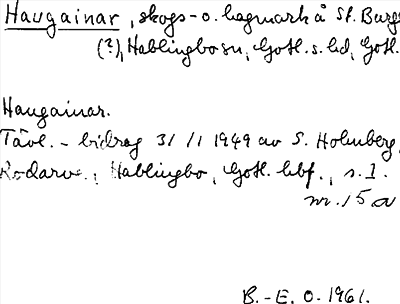 Haugainar, skogs- o. hagmark å St. Burge
(?), Hablingbo sn, Gotl. s. hd, Gotl.
Haugainar.
Tävl.-bidrag 31/1 1949 av S. Holmberg,
Rodarve, Hablingbo, Gotl. hbf., s. 1.
nr. 15 a
B.-E. O. 1961.